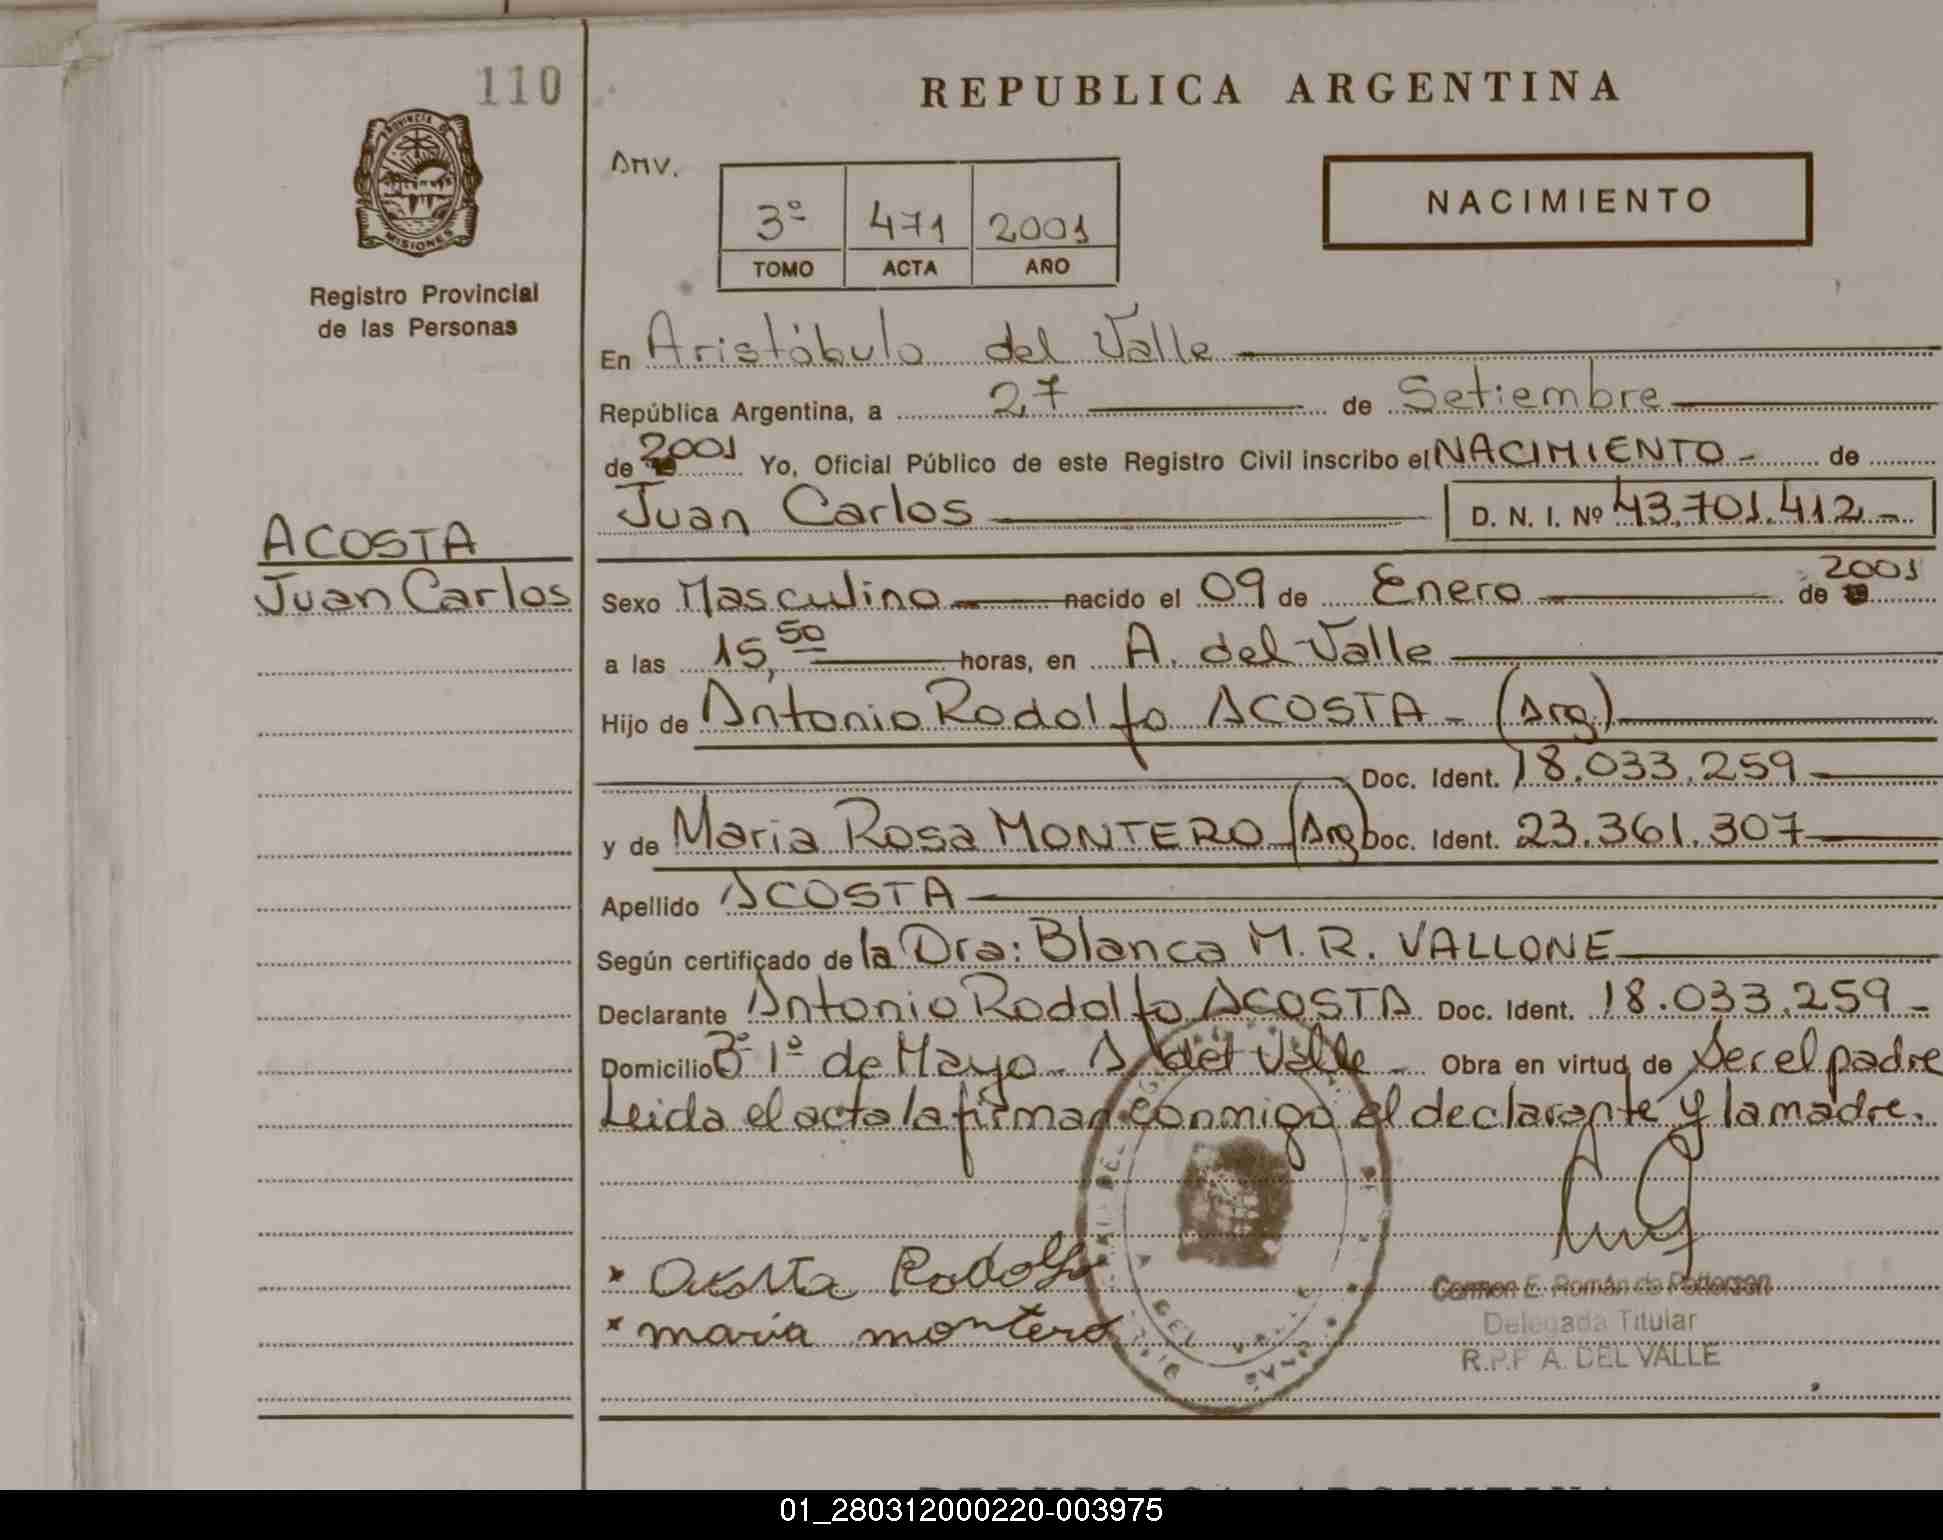 110
REPUBLICA ARGENTINA
PROVINCIA DE
MISIONES
Registro Provincial
de las Personas
AMV.
3º 471 2001
TOMO ACTA AÑO
NACIMIENTO
En Aristóbulo del Valle
República Argentina, a 27 de Setiembre
de 2001 Yo, Oficial Público de este Registro Civil inscribo el NACIMIENTO - de
Juan Carlos D. N. I. Nº 43.701.412 -
ACOSTA
Juan Carlos
Sexo Masculino nacido el 09 de Enero de 2001
a las 15,50 horas, en A. del Valle
Hijo de Antonio Rodolfo ACOSTA - (Arg.)
Doc. Ident. 18.033.259
y de Maria Rosa MONTERO (Arg) Doc. Ident. 23.361.307
Apellido ACOSTA
Según certificado de la Dra: Blanca M. R. VALLONE
Declarante Antonio Rodolfo ACOSTA Doc. Ident. 18.033.259 -
Domicilio Bº 1º de Mayo - A del Valle - Obra en virtud de Ser el padre
Leida el acta la firman conmigo el declarante y la madre.
x Acosta Rodolfo
x maria montero
Carmen E. Román de
Delegada Titular
R.P.P A. DEL VALLE
REPUBLICA ARGENTINA
01_280312000220-003975